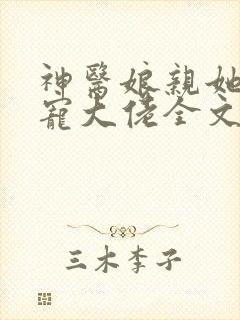 神醫娘親她
寵大佬全文
三木李子